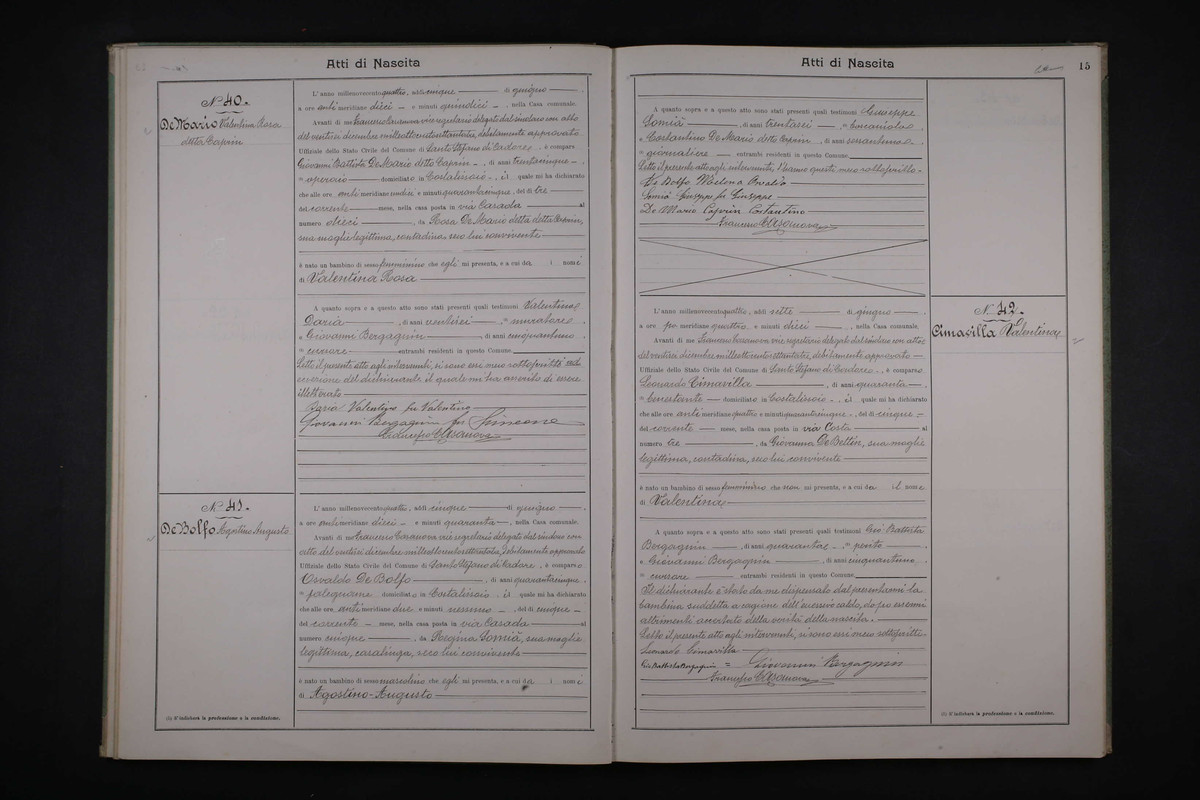 Atti di Nascita
N. 40.
De Mario Valentina Rosa
detta Caprin
L'anno millenovecentoquattro, addì cinque di giugno
a ore antimeridiane dieci e minuti quindici, nella Casa comunale.
Avanti di me Francesco Casanova vice segretario delegato dal sindaco con atto
del ventisei dicembre milleottocentottantatre, debitamente approvato
Uffiziale dello Stato Civile del Comune di Santo Stefano di Cadore, è comparso
Giovanni Battista De Mario detto Caprin, di anni trentacinque,
operaio domiciliato in Costalissoio, il quale mi ha dichiarato
che alle ore antimeridiane undici e minuti quarantacinque, del dì tre
del corrente mese, nella casa posta in via Casada al
numero dieci, da Rosa De Mario detta Caprin,
sua moglie legittima, contadina, seco lui convivente
è nato un bambino di sesso femminino che egli mi presenta, e a cui dà i nomi
di Valentina Rosa
A quanto sopra e a questo atto sono stati presenti quali testimoni Valentino
Darià, di anni ventisei, muratore
e Giovanni Bergagnin, di anni cinquantuno
cursore entrambi residenti in questo Comune
Letto il presente atto agli intervenuti, si sono essi meco sottoscritti ad
eccezione del dichiarante il quale mi ha asserito di essere
illetterato
Darià Valentino fu Valentino
Giovanni Bergagnin fu Simeone
Francesco Casanova
N. 41.
De Bolfo Agostino Augusto
L'anno millenovecentoquattro, addì cinque di giugno
a ore antimeridiane dieci e minuti quaranta, nella Casa comunale.
Avanti di me Francesco Casanova vice segretario delegato dal sindaco con
atto del ventisei dicembre milleottocentottantatre, debitamente approvato
Uffiziale dello Stato Civile del Comune di Santo Stefano di Cadore, è comparso
Osvaldo De Bolfo, di anni quarantacinque,
falegname domiciliato in Costalissoio il quale mi ha dichiarato
che alle ore antimeridiane due e minuti nessuno, del dì cinque
del corrente mese, nella casa posta in via Casada al
numero cinque, da Regina Somià, sua moglie
legittima, casalinga, seco lui convivente
è nato un bambino di sesso mascolino che egli mi presenta, e a cui dà i nomi
di Agostino-Augusto
(1) S'indicherà la professione o la condizione.
Atti di Nascita
15
A quanto sopra e a questo atto sono stati presenti quali testimoni Giuseppe
Somià, di anni trentasei,
e Costantino De Mario detto Caprin, di anni sessantuno,
giornaliere entrambi residenti in questo Comune
Letto il presente atto agli intervenuti, l'hanno questi meco sottoscritto
De Bolfo Osvaldo
Somià Giuseppe fu Giuseppe
De Mario Caprin Costantino
Francesco Casanova
L'anno millenovecentoquattro, addì sette di giugno
a ore pomeridiane quattro e minuti dieci, nella Casa comunale.
Avanti di me Francesco Casanova vice segretario delegato dal sindaco con atto
del ventisei dicembre milleottocentottantatre, debitamente approvato
Uffiziale dello Stato Civile del Comune di Santo Stefano di Cadore, è comparso
Leonardo Cimavilla, di anni quaranta,
benestante domiciliato in Costalissoio, il quale mi ha dichiarato
che alle ore antimeridiane quattro e minuti quarantacinque, del dì cinque
del corrente mese, nella casa posta in via Costa al
numero tre, da Giovanna De Bettin, sua moglie
legittima, contadina, seco lui convivente
è nato un bambino di sesso femminino che non mi presenta, e a cui dà il nome
di Valentina
A quanto sopra e a questo atto sono stati presenti quali testimoni Gio Battista
Bergagnin, di anni quaranta, perito
e Giovanni Bergagnin, di anni cinquantuno
cursore entrambi residenti in questo Comune
Il dichiarante è stato da me dispensato dal presentarmi la
bambina suddetta a cagione dell'eccessivo caldo, dopo essermi
altrimenti accertato della verità della nascita.
Letto il presente atto agli intervenuti, si sono essi meco sottoscritti
Leonardo Cimavilla
Gio Batta Bergagnin = Giovanni Bergagnin
Francesco Casanova
N. 42.
Cimavilla Valentina
(1) S'indicherà la professione o la condizione.